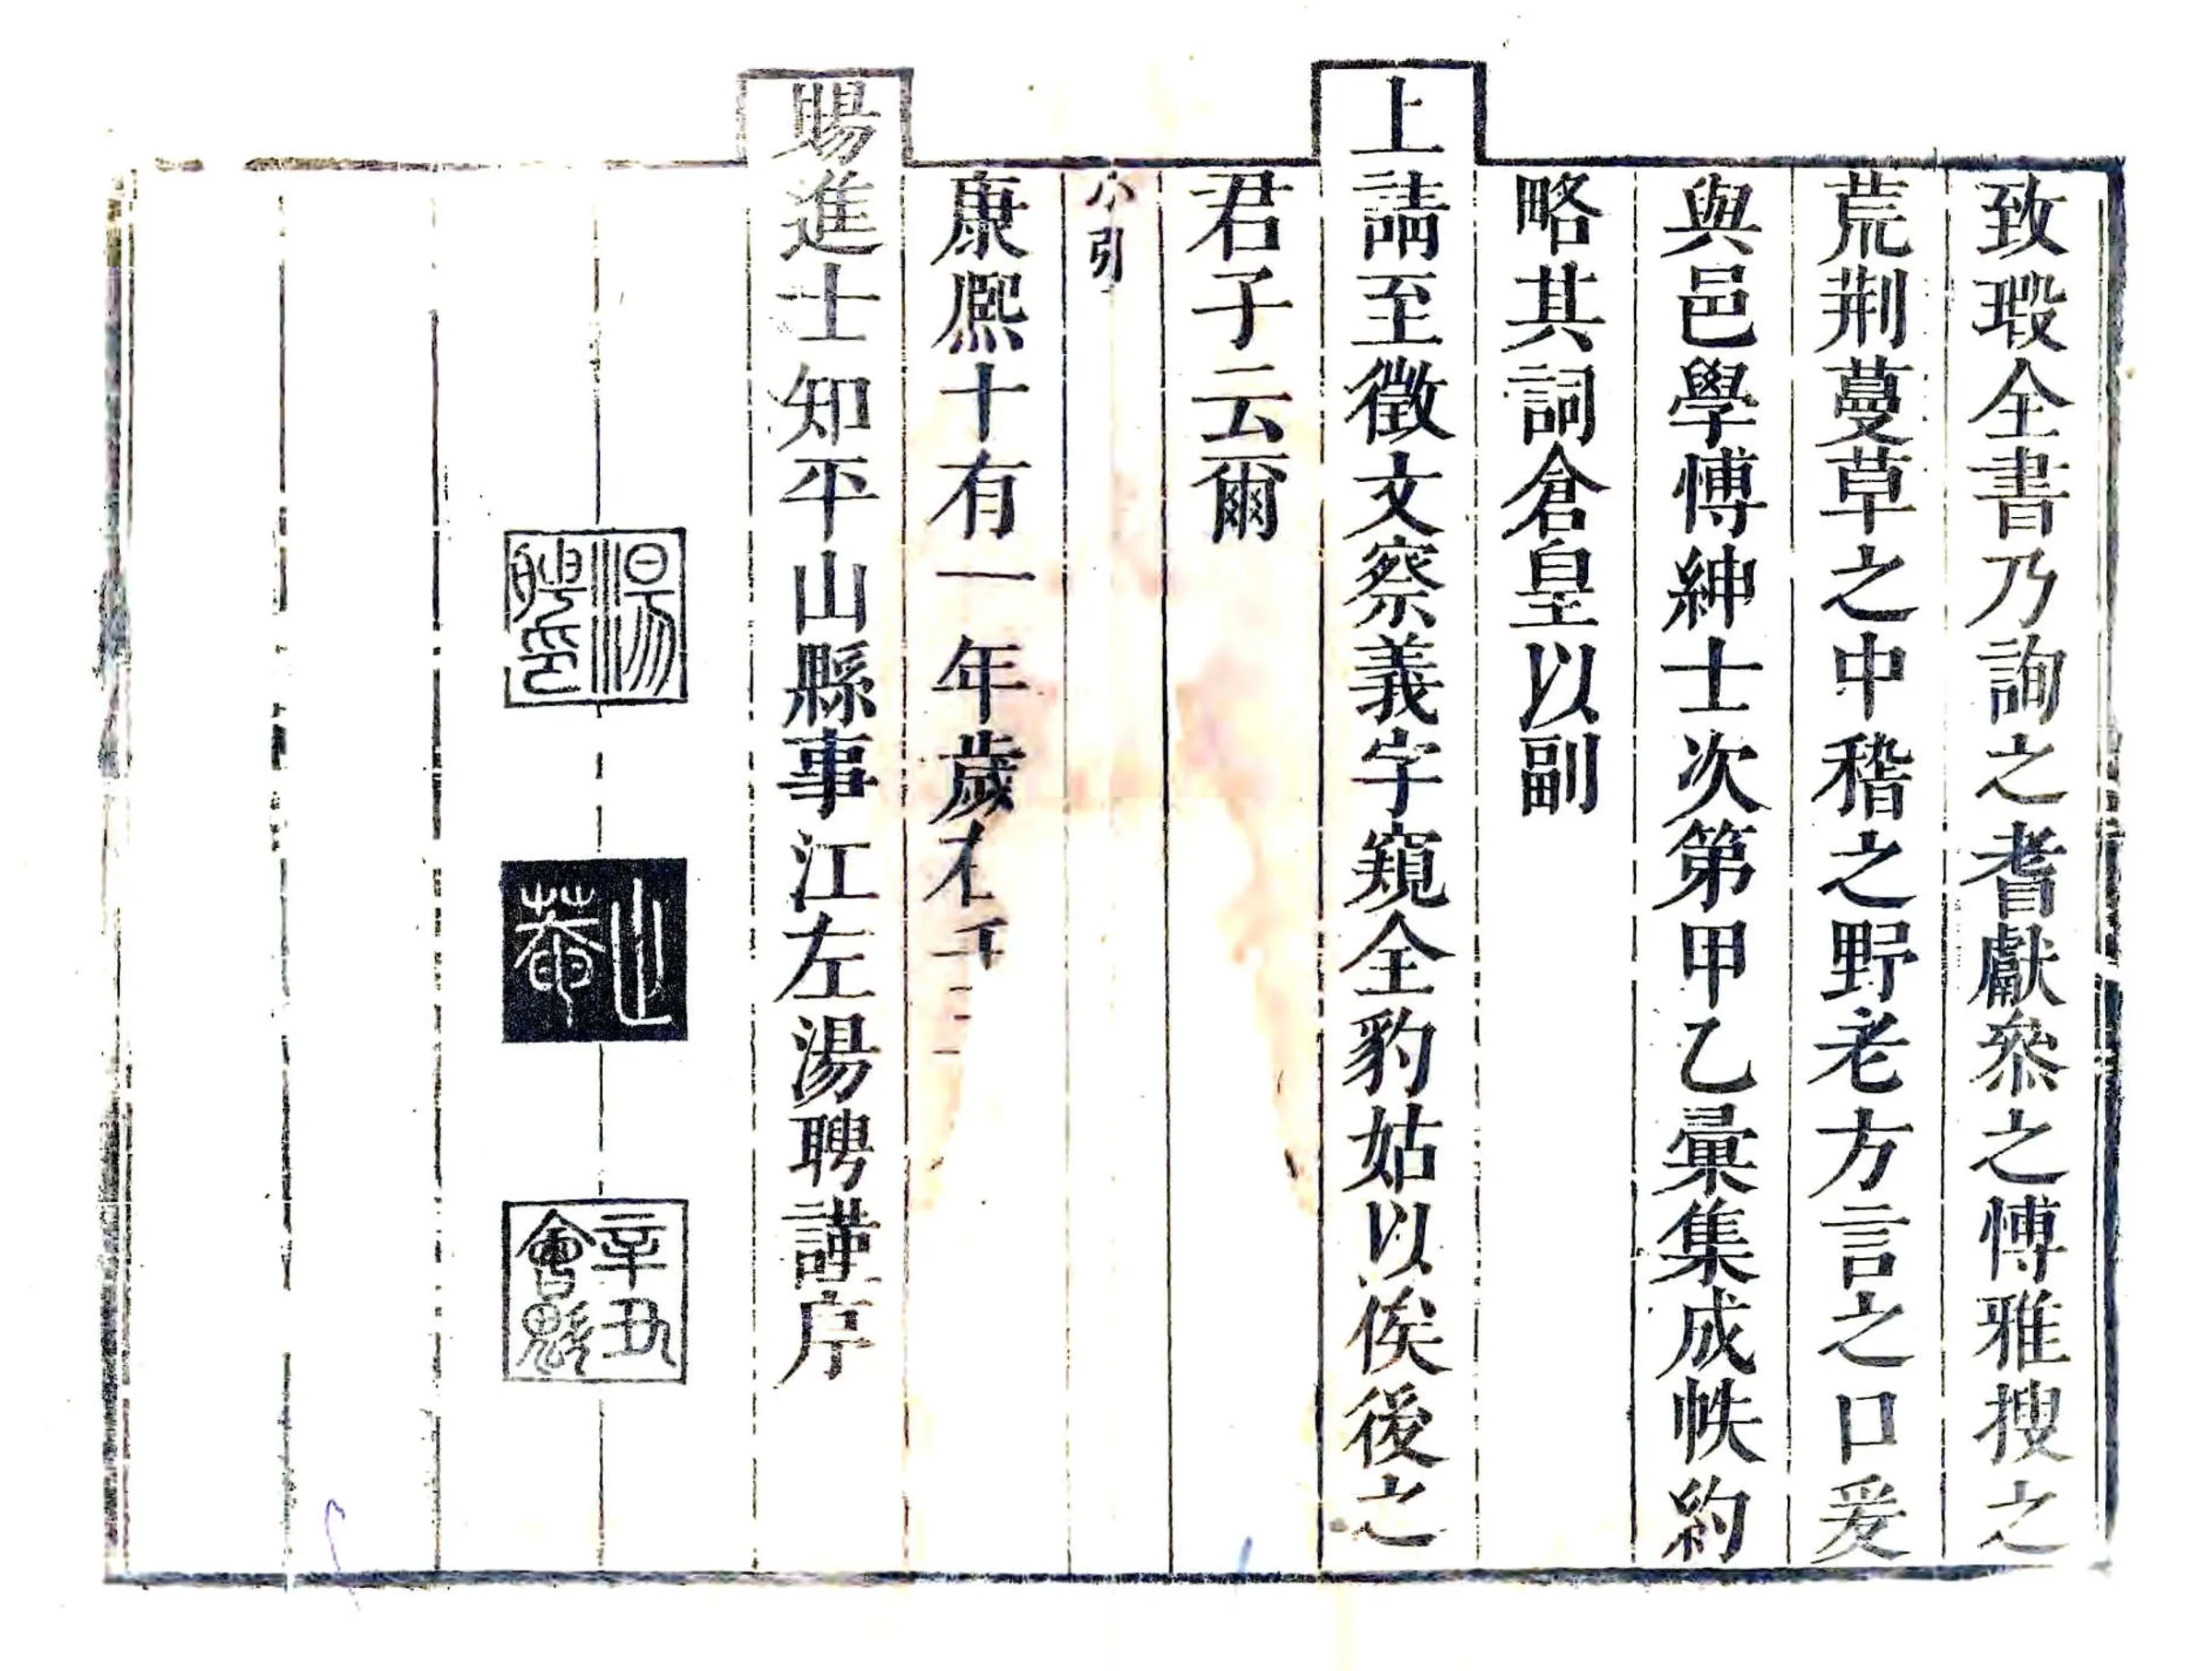 致瑕全書乃詢之耆獻叅之愽雅搜之
荒荆蔓草之中稽之野老方言之口爰
與邑學愽紳士次第甲乙彙集成帙約
略其詞倉皇以副
上請至徵文察義字窺全豹姑以俟後之
君子云爾
小引
康熈十有一年歲在壬
賜進士知平山縣事江左湯聘謹序
湯聘印
止菴
辛丑會魁